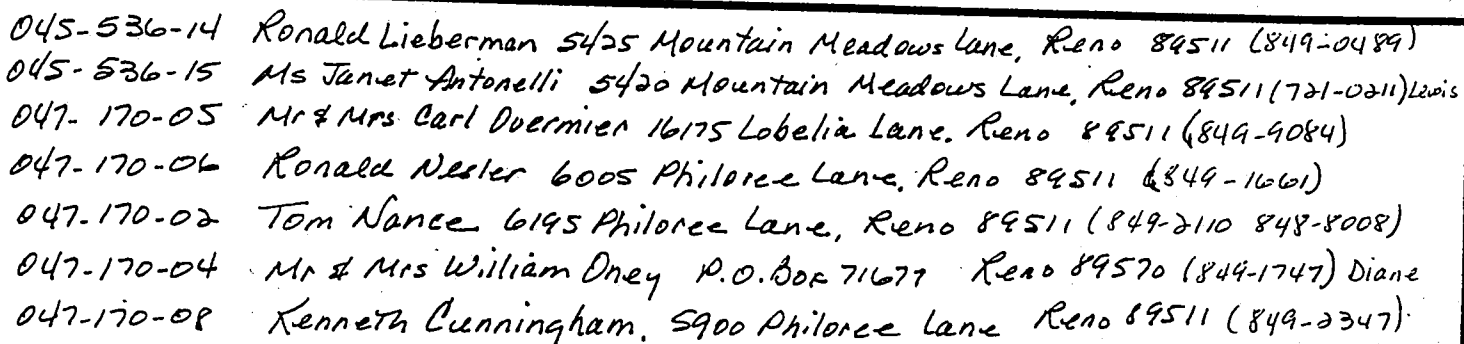 045-536-14 Ronald Lieberman 5425 Mountain Meadows Lane, Reno 89511 (849-0489)
045-536-15 Ms Janet Antonelli 5420 Mountain Meadows Lane, Reno 89511 (721-0211) Lewis
047-170-05 Mr & Mrs Carl Overmier 16175 Lobelia Lane. Reno 89511 (849-9084)
047-170-06 Ronald Nesler 6005 Philoree Lane, Reno 89511 (849-1661)
047-170-02 Tom Nance 6195 Philoree Lane, Reno 89511 (849-2110 848-8008)
047-170-04 Mr & Mrs William Oney P.O. Box 71677 Reno 89570 (849-1747) Diane
047-170-08 Kenneth Cunningham, 5900 Philoree Lane Reno 89511 (849-2347)